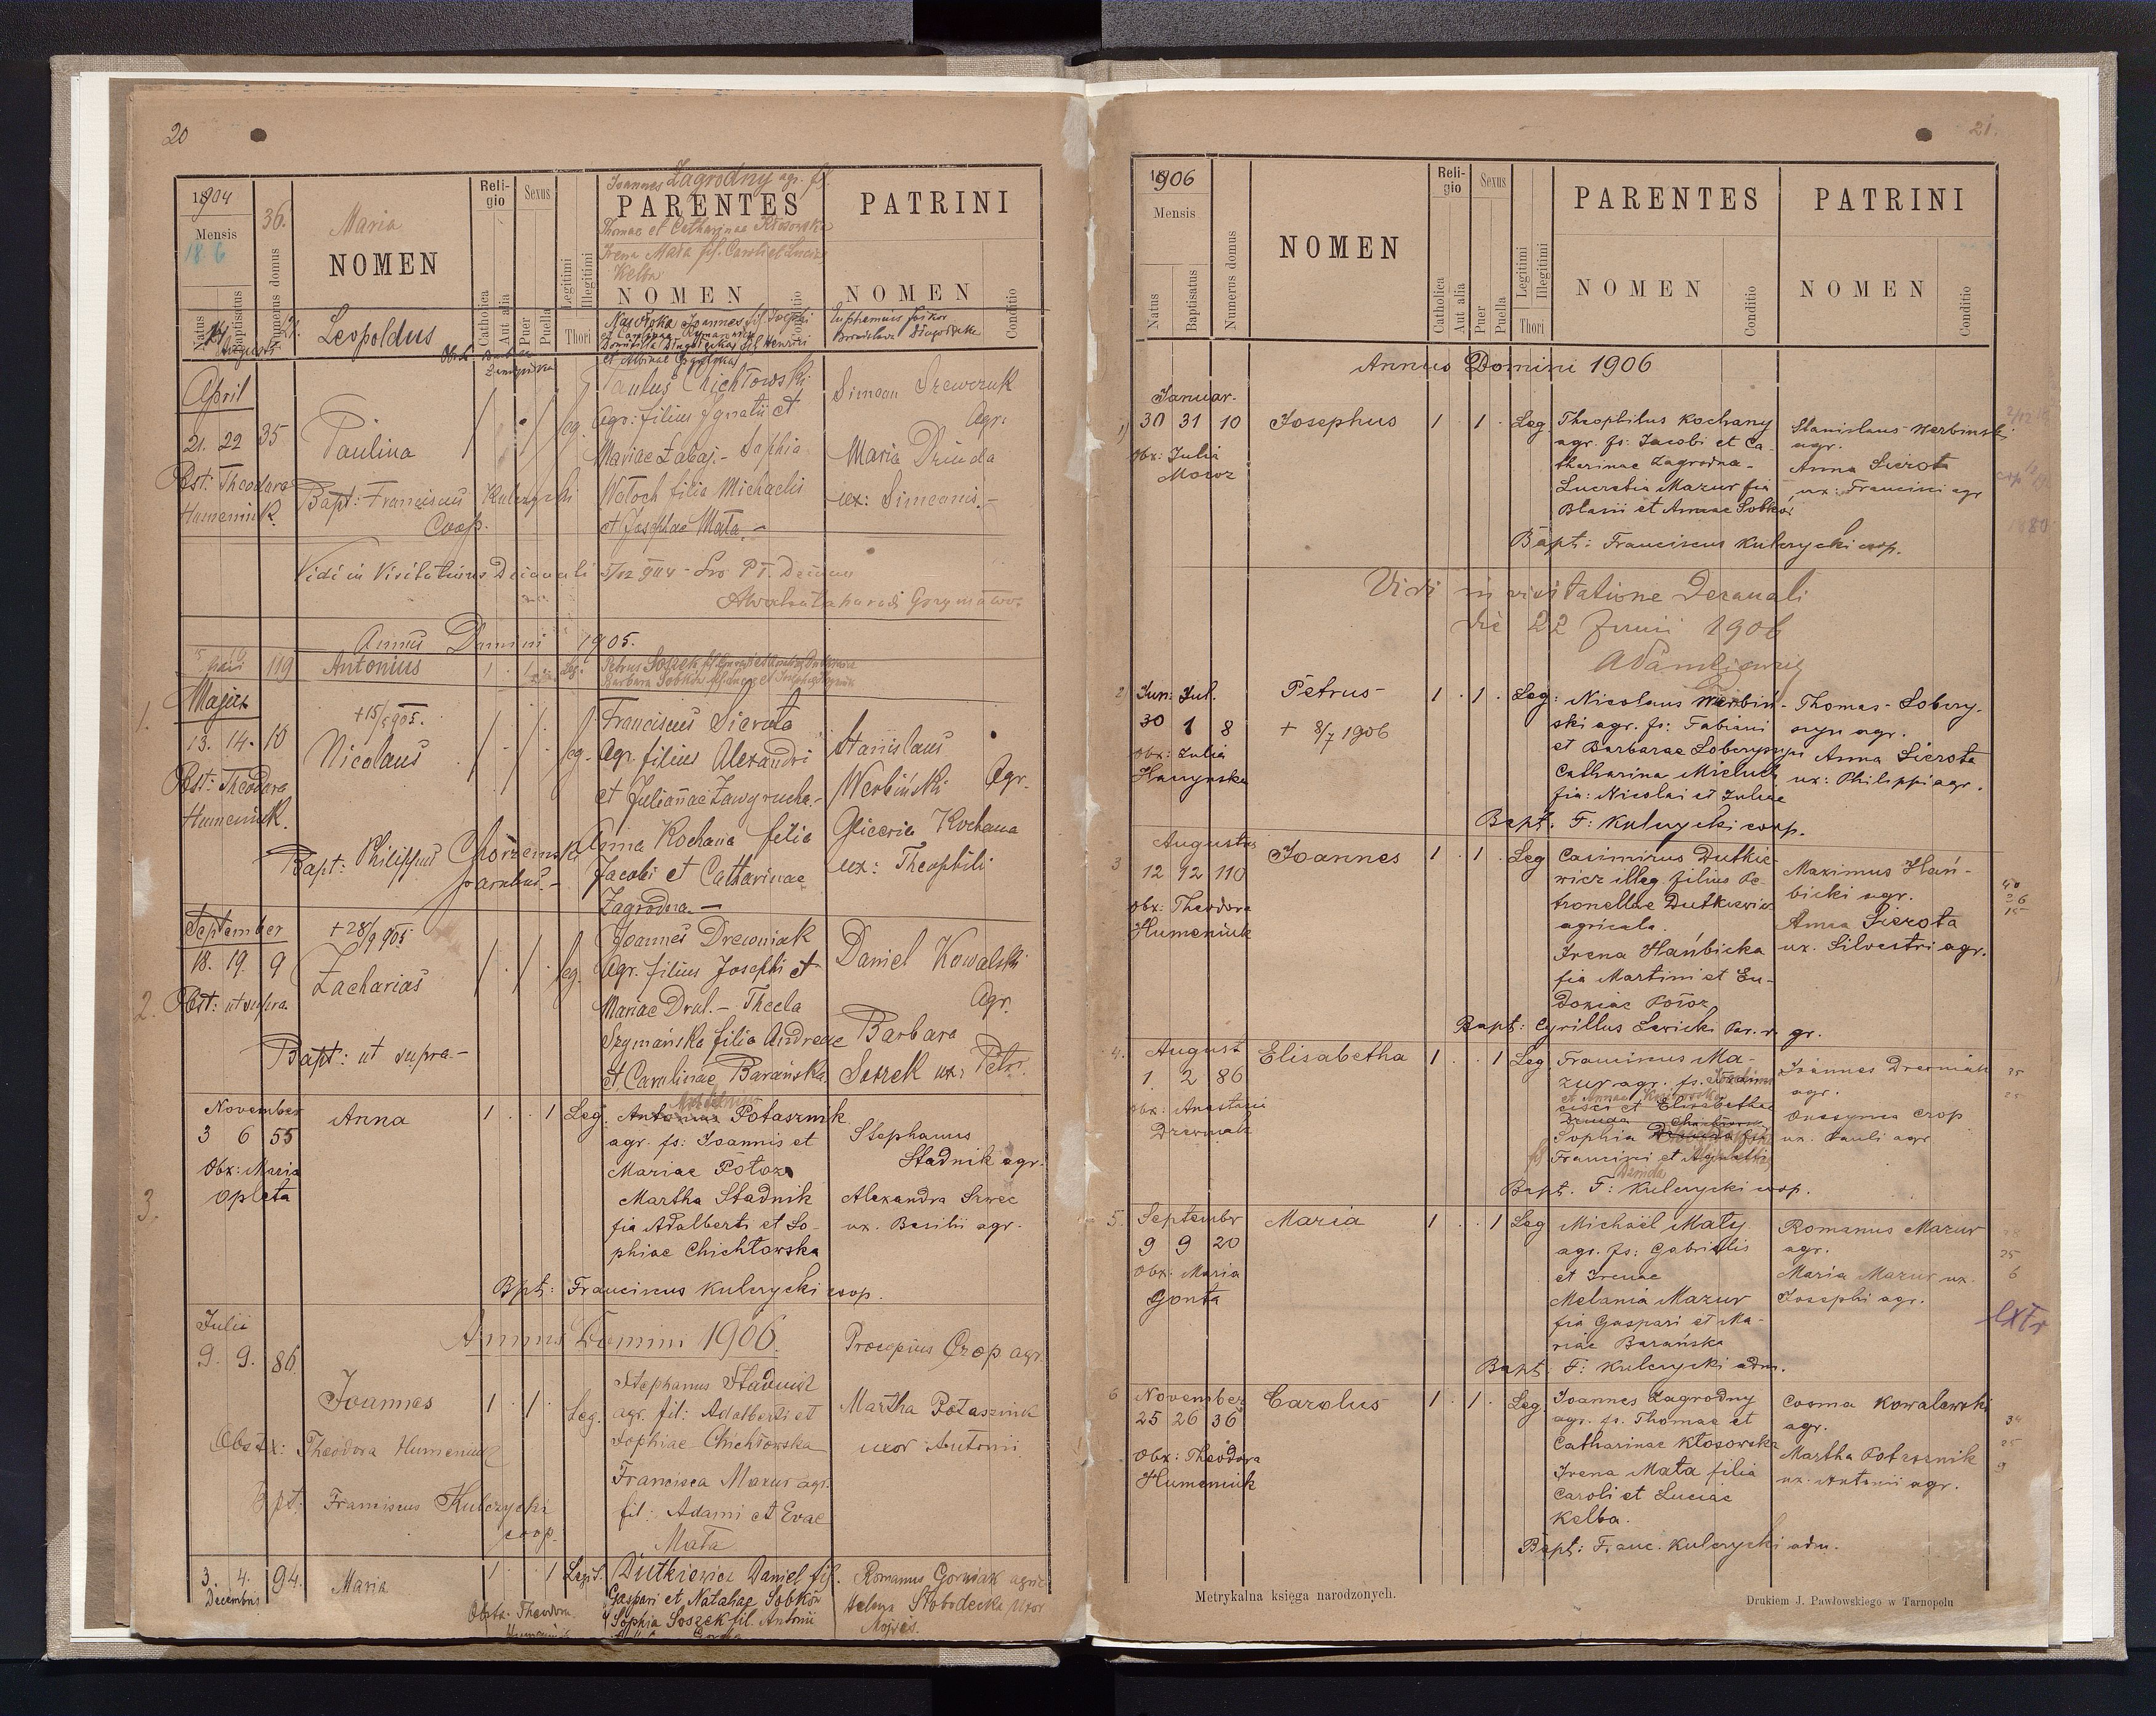 20
1904
Mensis
18 6
36.
Maria
NOMEN
Religio
Sexus
Joannes Zagrodny agr. fs.
PARENTES
Thomae et Catharinae Kłosowska
Irena Mała fil. Caroli et Luciae
Kelba
PATRINI
Natus
Baptisatus
Numerus domus
Catholica
Aut alia
Puer
Puella
Legitimi
Illegitimi
Thori
NOMEN
Conditio
NOMEN
Conditio
Augusti
Leopoldus
Joannes fil. Josephi
April
21. 22 35
Obst: Theodora
Humeniuk
Paulina
Bapt: Franciscus Kulczycki
Coop.
leg.
Paulus Chichłowski
Agr: filius Ignatii et
Mariae Żabaj.- Sophia
Wołoch filia Michaelis
et Josephae Mała.-
Simeon Szewczuk
Agr:
Maria Dziuda
ux: Simeonis.-
Vidi in Visitatione Decanali
Annus Domini 1905.
119
Antonius
Leg.
1.
Majus
13. 14. 10
Obst: Theodora
Humeniuk.
+15/5 905.
Nicolaus
Bapt: Philippus Chorzemski
parochus.-
leg.
Franciscus Sierota
Agr. filius Alexandri
et Julianae Zawyrucha.-
Anna Kochana filia
Jacobi et Catharinae
Zagrodna.-
Stanislaus
Werbiński Agr.
Gliceria Kochana
ux: Theophili
2.
September
18. 19. 9
Obst: ut supra.
+28/9 905
Zacharias
Bapt: ut supra.-
leg.
Joannes Drewniak
Agr. filius Josephi et
Mariae Drul.- Thecla
Szymańska filia Andreae
et Carolinae Barańska
Daniel Kowalski
Agr.
Barbara
Soszek ux: Petri.
3.
November
3 6 55
Obx: Maria
Opleta
Anna
1 . . 1 Leg.
Potasznik
agr. fs: Joannis et
Mariae Potoza
Martha Stadnik
fia Adalberti et So-
phiae Chichłowska
Stephanus
Stadnik agr.
Alexandra Szwec
ux. Basilii agr.
Bpt: Franciscus Kulczycki coop.
Annus Domini 1906.
Julii
9. 9. 86
Joannes
1 . 1 . Leg.
Obstx: Theodora Humeniuk
Bpt: Franciscus Kulczycki
coop.
Stephanus Stadnik
agr. fil: Adalberti et
Sophiae Chichłowska
Francisca Mazur agr.
fil: Adami et Evae
Mała
Procopius Czop agr.
Martha Potasznik
uxor Antonii
3. 4. 94.
Decembris
Maria
1 . . 1 Legit.
Obstx. Theodora
Humeniuk
Dutkiewicz Daniel fil.
Gaspari et Nataliae Sobków
Sophia Soszek fil. Antonii
Romanus Gorniak agric.
Helena Słobodecka uxor
21.
1906
Mensis
Natus
Baptisatus
Numerus domus
NOMEN
Religio
Catholica
Aut alia
Sexus
Puer
Puella
Legitimi
Illegitimi
Thori
PARENTES
NOMEN
Conditio
PATRINI
NOMEN
Conditio
Annus Domini 1906
1)
Januar.
30 31 10
Obx: Julia
Moroz
Josephus
1 . 1 . Leg.
Theophilus Kochany
agr. fs: Jacobi et Ca-
tharinae Zagrodna-
Lucretia Mazur fia
Blasii et Annae Sobków
Stanislaus Werbinski
agr.
Anna Sierota
ux: Francisci agr
Bapt: Franciscus Kulczycki coop.
Vidi in visitatione Decanali
die 22 Junii 1906
2)
Jun: Jul.
30 1 8
Obx: Julia
Petrus
+ 8/7 1906
1 . 1 . Leg:
Nicolaus Werbiń-
ski agr. fs: Fabiani
et Barbarae
Catharina
fia: Nicolai et Juliae
Thomas
agr.
Anna Sierota
ux: Philippi agr.
Bapt. F: Kulczycki coop.
3
Augustus
12 12 110
Obx: Theodora
Humeniuk
Joannes
1 . 1 . Leg
Casimirus Dutkie-
wicz illeg. filius Pe-
tronellae Dutkiewicz
agricola.
Irena Hańbicka
fia Martini et Eu-
doxiae
Maximus Hań-
bicki agr.
Anna Sierota
ux. Silvestri agr.
Bapt: Cyrillus Lewicki Par. r. gr.
4.
August
1. 2 86
Obx: Anastasia
Drewniak
Elisabetha
1 . . 1 Leg
Franciscus Ma-
zur agr. fs.
et Annae
cisci et Elisabethae
Sophia
Francisci et
Joannes Drewniak
agr.
Czop
ux. Pauli agr
Bapt. F: Kulczycki coop.
5.
September
9 9 20
Obx: Maria
Gonta
Maria
1 . . 1 Leg
Michaël Mały
agr. fs: Gabrielis
et Irenae
Melania Mazur
fia Gaspari et Ma-
riae Barańska
Romanus Mazur
agr.
Maria Mazur ux.
Josephi agr.
extr
Bapt. F: Kulczycki adm.
6
November
25 26 36
Obx: Theodora
Humeniuk
Carolus
1 . 1 . Leg
Joannes Zagrodny
agr. fs. Thomae et
Catharinae Kłosowska
Irena Mała filia
Caroli et Luciae
Kelba.
Cosma Kowalewski
agr.
Martha Potasznik
ux. Antonii agr.
Bapt: Franc. Kulczycki adm.
Metrykalna księga narodzonych.
Drukiem J. Pawłowskiego w Tarnopolu